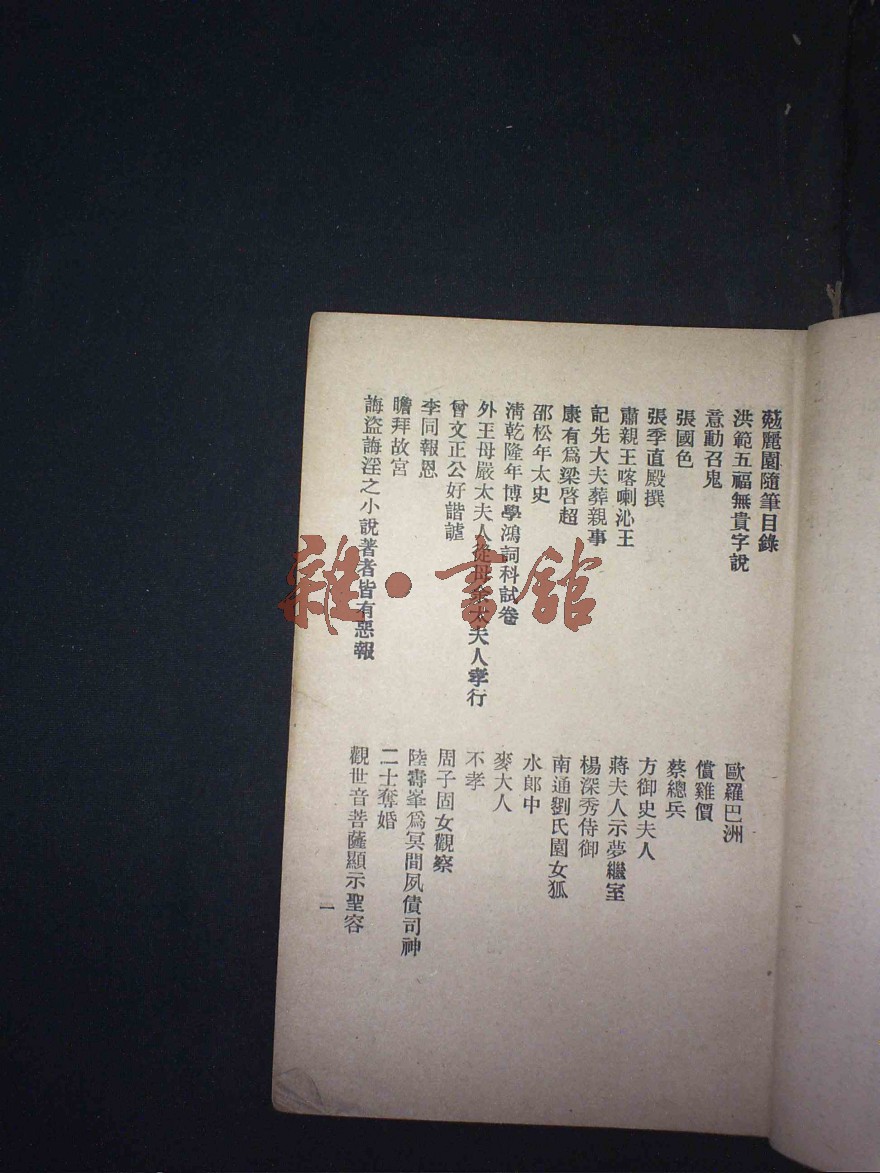 麗園隨筆目錄
洪範五福無貴字說
意動召鬼
張國色
張季直殿撰
肅親王喀喇沁王
記先大夫葬親事
康有爲梁啓超
邵松年太史
清乾隆年博學鴻詞科試卷
外王母嚴太夫人從母余太夫人孝行
曾文正公好諧謔
李同報恩
瞻拜故宮
誨盜誨淫之小說著者皆有惡報
歐羅巴洲
償雞價
蔡總兵
方御史夫人
蔣夫人示夢繼室
楊深秀侍御
南通劉氏園女狐
水郎中
麥大人
不孝
周子固女觀察
陸壽峯爲冥間夙債司神
二士奪婚
觀世音菩薩顯示聖容
一
雜·書館